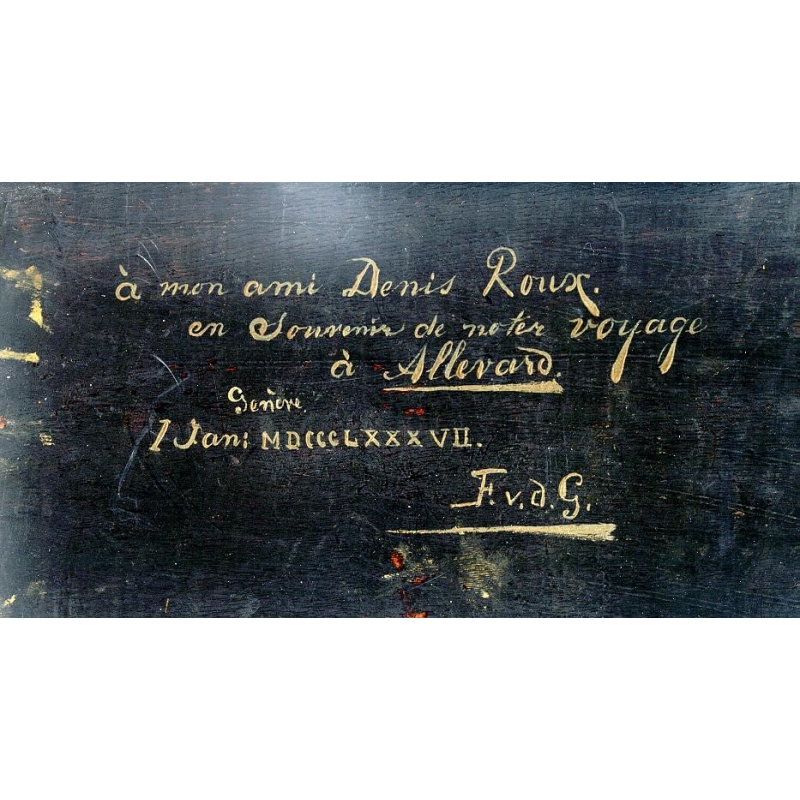 à mon ami Denis Roux.
en Souvenir de noter voyage
à Allevard.
Genève.
1 Jan: MDCCCLXXXVII.
F. v. d. G.